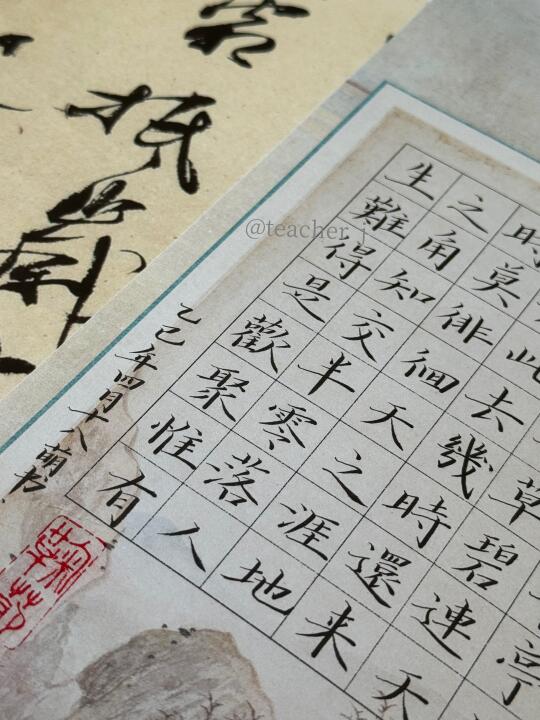 亭
草碧連天
此去幾時還来
時莫徘徊天之涯地
之角知交半零落人
生難得是歡聚惟有
乙巳年四月十八萌书
@teacher_j